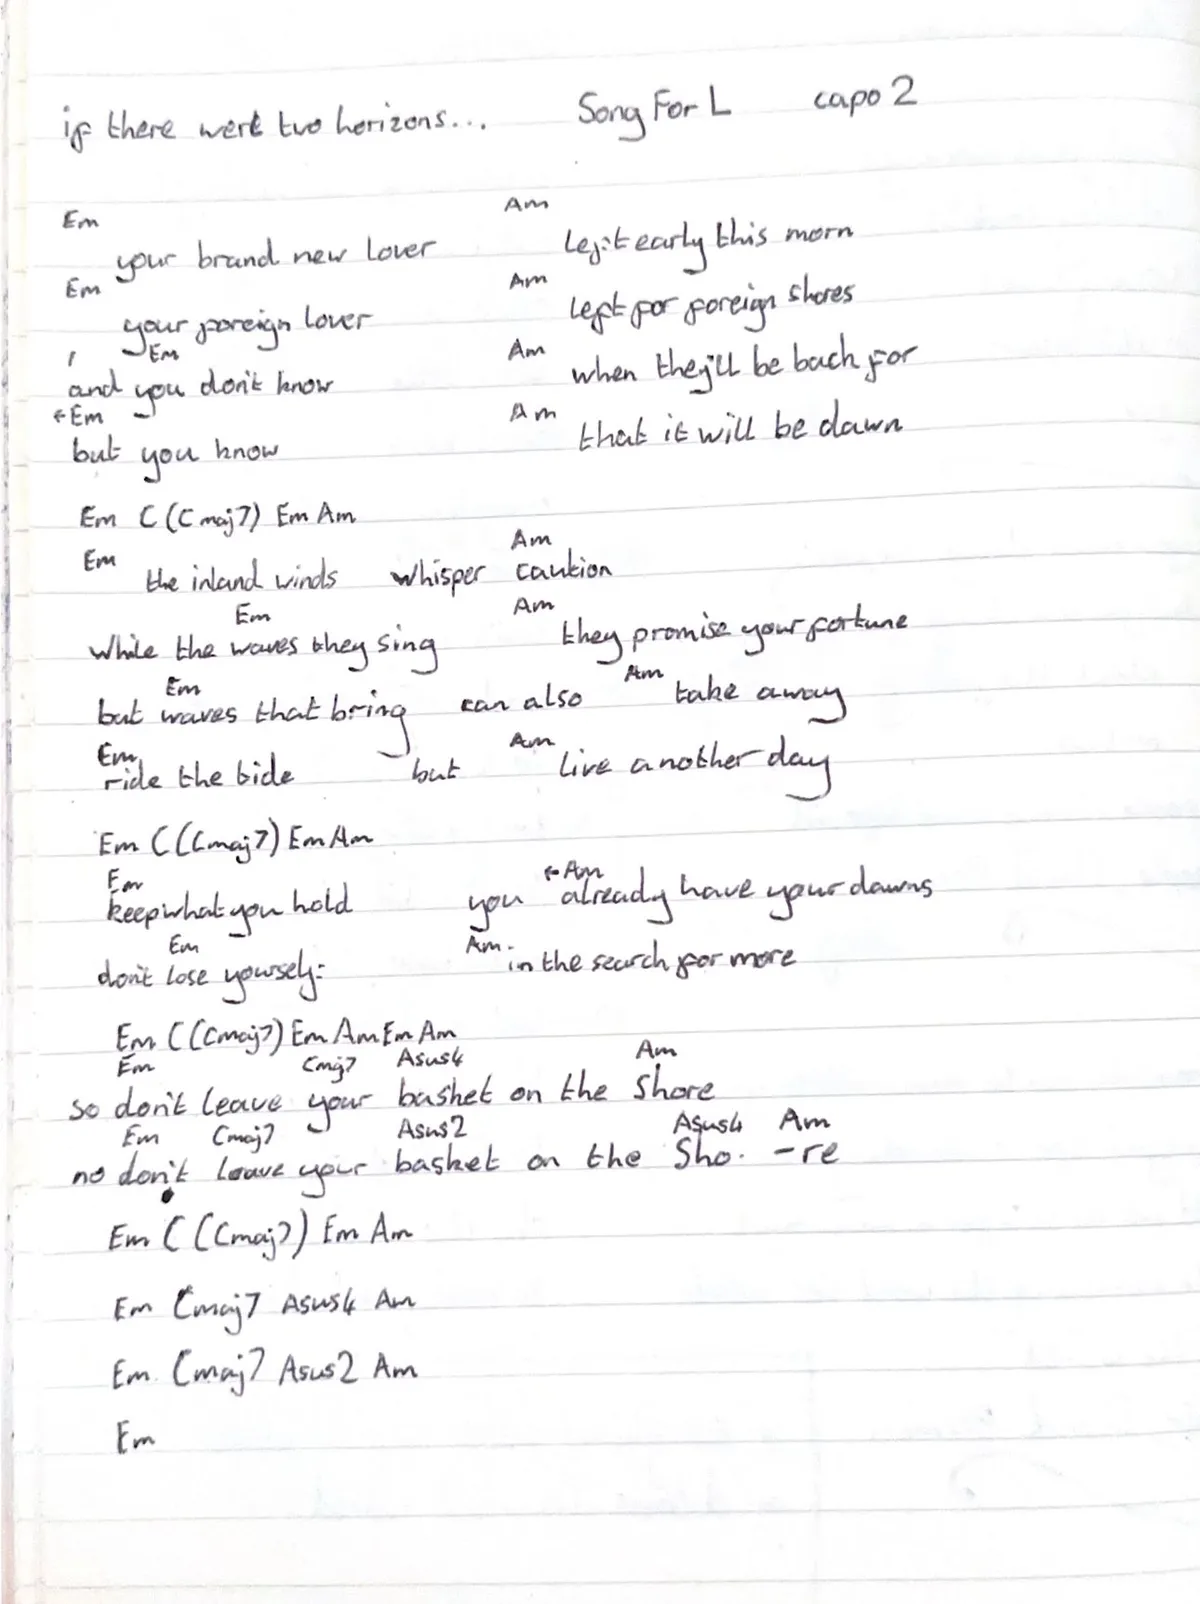 if there were two horizons... Song For L capo 2
Em Am
your brand new lover left early this morn
Em Am
your foreign lover left for foreign shores
Em Am
and you don't know when they'll be back for
←Em Am
but you know that it will be dawn
Em C (Cmaj7) Em Am
Em Am
the inland winds whisper caution
Em Am
while the waves they sing they promise your fortune
Em Am
but waves that bring can also take away
Em Am
ride the tide but live another day
Em C (Cmaj7) Em Am
Em ←Am
keep what you hold you already have your dawns
Em Am
don't lose yourself in the search for more
Em C (Cmaj7) Em Am Em Am
Em Cmaj7 Asus4 Am
so don't leave your basket on the shore
Em Cmaj7 Asus2 Asus4 Am
no don't leave your basket on the Sho. -re
Em C (Cmaj7) Em Am
Em Cmaj7 Asus4 Am
Em Cmaj7 Asus2 Am
Em